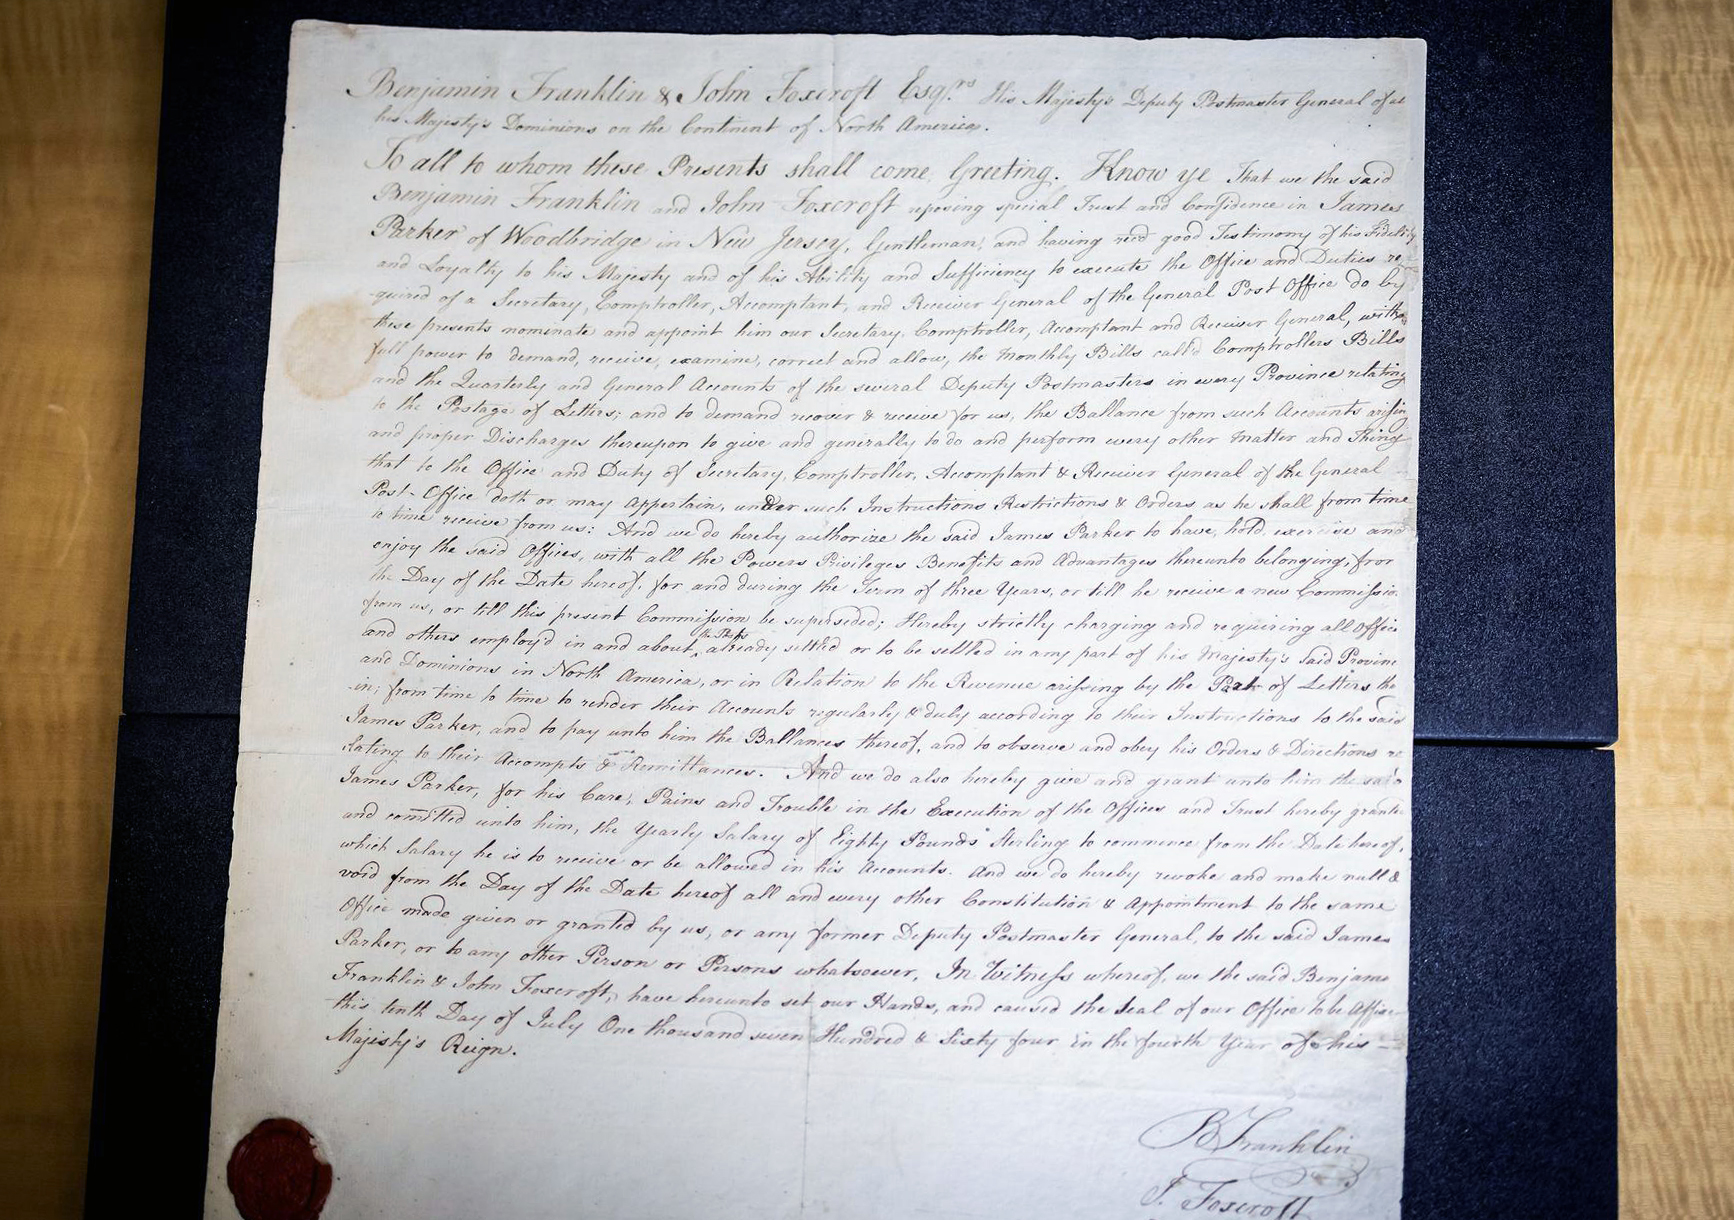 Benjamin Franklin & John Foxcroft Esqrs His Majesty's Deputy Postmaster General of al
his Majesty's Dominions on the Continent of North America.
To all to whom these Presents shall come, Greeting. Know ye That we the said
Benjamin Franklin and John Foxcroft reposing special Trust and Confidence in James
Parker of Woodbridge in New Jersey, Gentleman, and having recd good Testimony of his Fidelity
and Loyalty to his Majesty and of his Ability and Sufficiency to execute the Office and Duties re
quired of a Secretary, Comptroller, Accomptant, and Receiver General of the General Post Office do by
these presents nominate and appoint him our Secretary, Comptroller, Accomptant and Receiver General, with
full power to demand, receive, examine, correct and allow, the Monthly Bills call'd Comptrollers Bills
and the Quarterly and General Accounts of the several Deputy Postmasters in every Province relating
to the Postage of Letters; and to demand recover & receive for us, the Ballance from such Accounts arising
and proper Discharges thereupon to give and generally to do and perform every other Matter and Thing
that to the Office and Duty of Secretary, Comptroller, Accomptant & Receiver General of the General
Post-Office doth or may Appertain, under such Instructions Restrictions & Orders as he shall from time
to time receive from us: And we do hereby authorize the said James Parker to have, hold, exercise and
enjoy the said Offices, with all the Powers Privileges Benefits and Advantages thereunto belonging, from
the Day of the Date hereof, for and during the Term of three Years, or till he receive a new Commissio
from us, or till this present Commission be superseded; Hereby strictly charging and requiring all Office
and others employ'd in and about the Posts already settled or to be settled in any part of his Majesty's said Provinc
and Dominions in North America, or in Relation to the Revenue arising by the of Letters the
in; from time to time to render their Accounts regularly & duly according to their Instructions to the said
James Parker, and to pay unto him the Ballances thereof, and to observe and obey his Orders & Directions re
lating to their Accompts & Remittances. And we do also hereby give and grant unto him the said
James Parker, for his Care, Pains and Trouble in the Execution of the Offices and Trust hereby grante
and comitted unto him, the Yearly Salary of Eighty Pounds Sterling to commence from the Date hereof,
which Salary he is to receive or be allowed in his Accounts. And we do hereby revoke and make null &
void from the Day of the Date hereof all and every other Constitution & Appointment to the same
Office made given or granted by us, or any former Deputy Postmaster General, to the said James
Parker, or to any other Person or Persons whatsoever. In Witness whereof, we the said Benjami
Franklin & John Foxcroft, have hereunto set our Hands, and caused the Seal of our Office to be Affix
this tenth Day of July One thousand seven Hundred & Sixty four in the fourth Year of his
Majesty's Reign.
B Franklin
J. Foxcroft